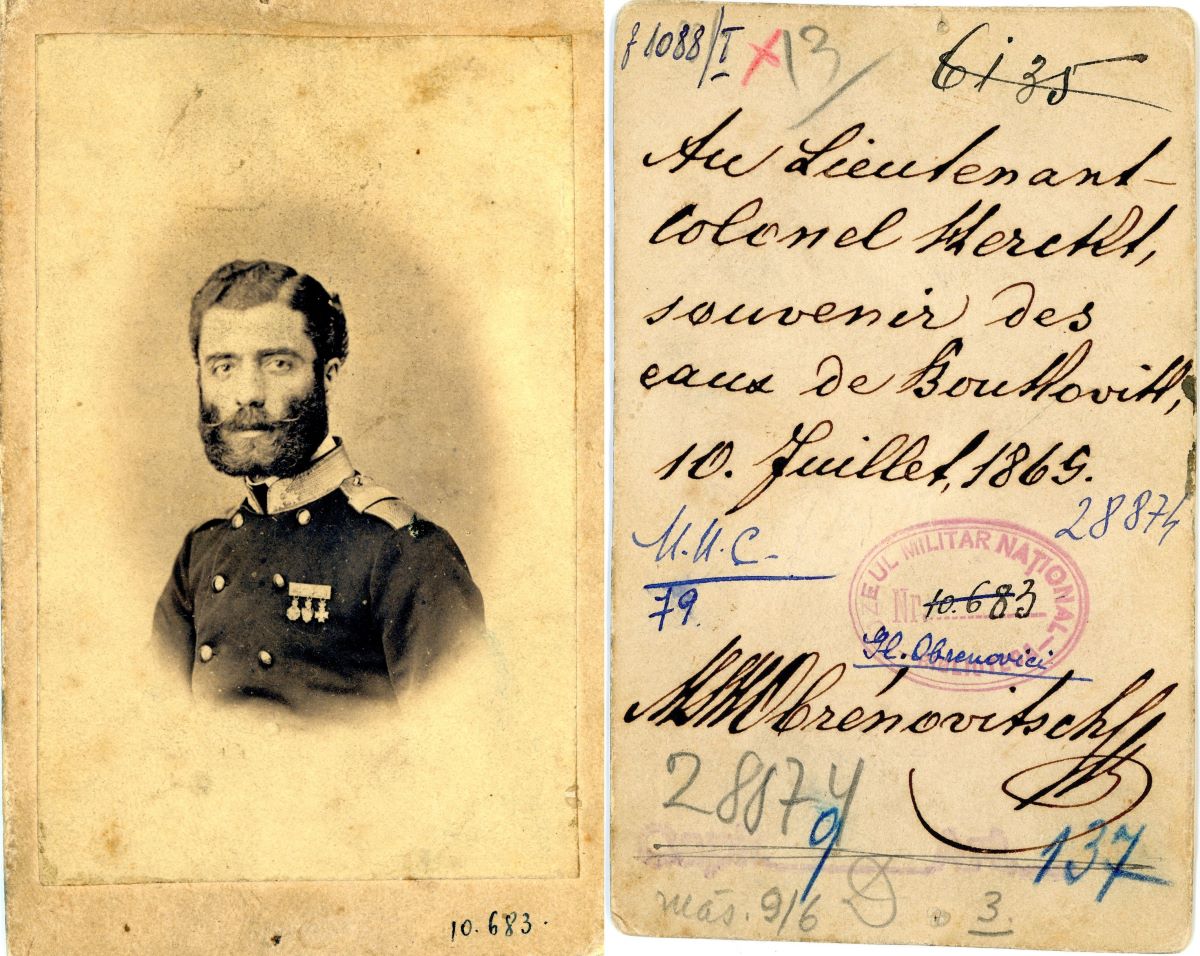 10.683.
f 1088/I x 13
6135
Au Lieutenant-
Colonel Herckt,
souvenir des
eaux de
10. Juillet, 1865.
28874
M.M.C.
79.
MUZEUL MILITAR NAȚIONAL
Nr. 10.683
Gl. Obrenovici
Obrénovitsch
28874
9
137
măs. 9/6 D 3.